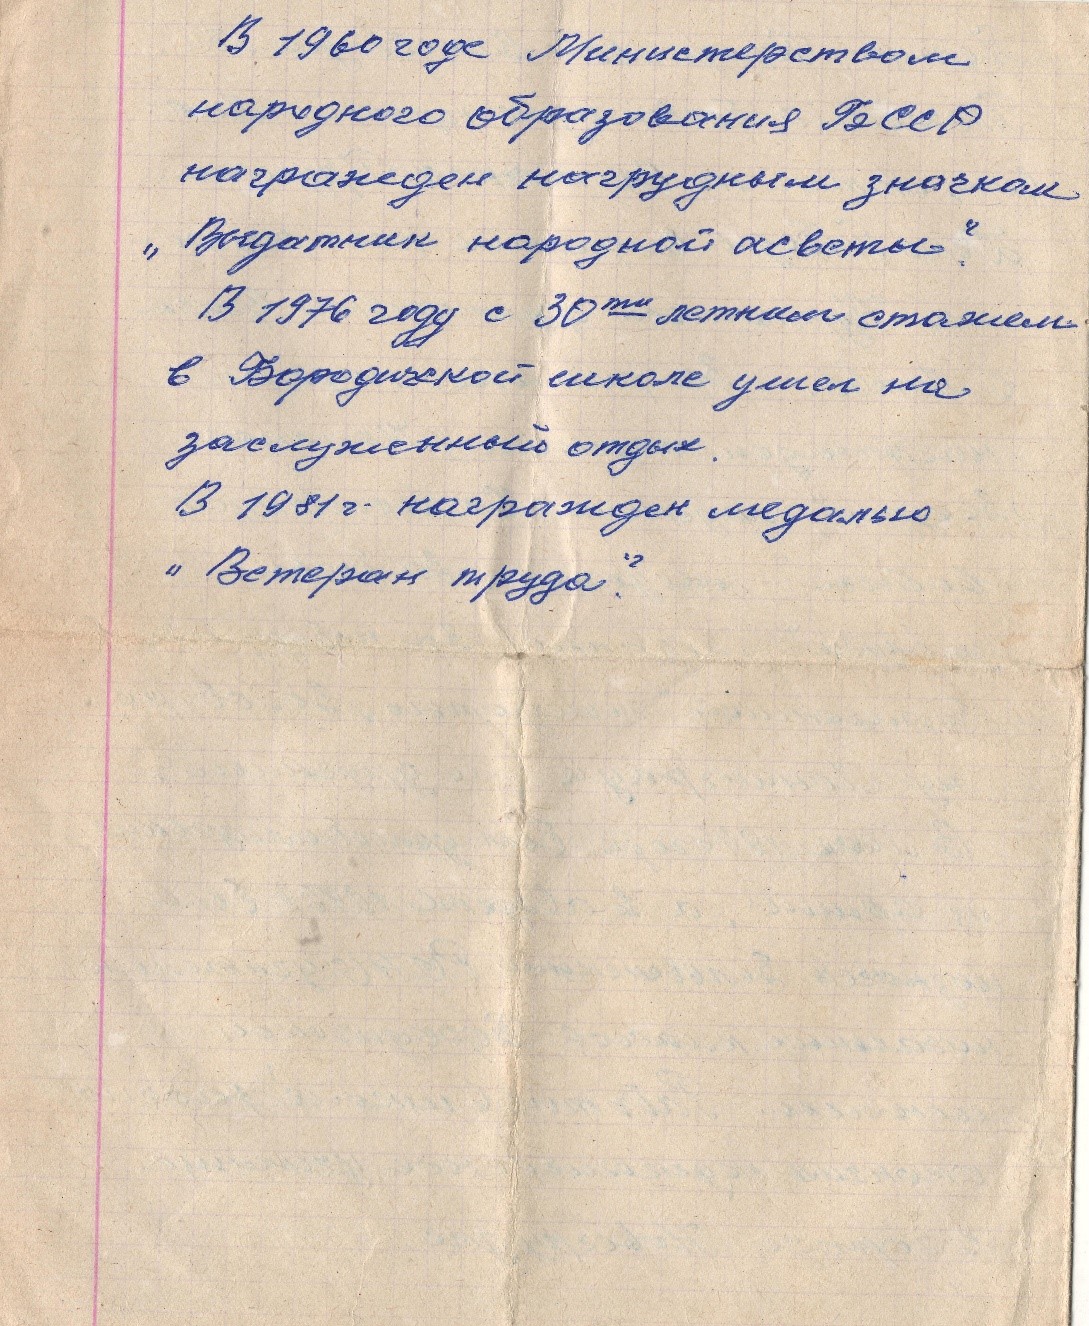 В 1960 годе Министерством
народного образования БССР
награжден нагрудным значком
„Выдатник народной асветы“.
В 1976 году с 30ти летним стажем
в Бородичской школе ушел на
заслуженный отдых.
В 1981 г. награжден медалью
„Ветеран труда“.